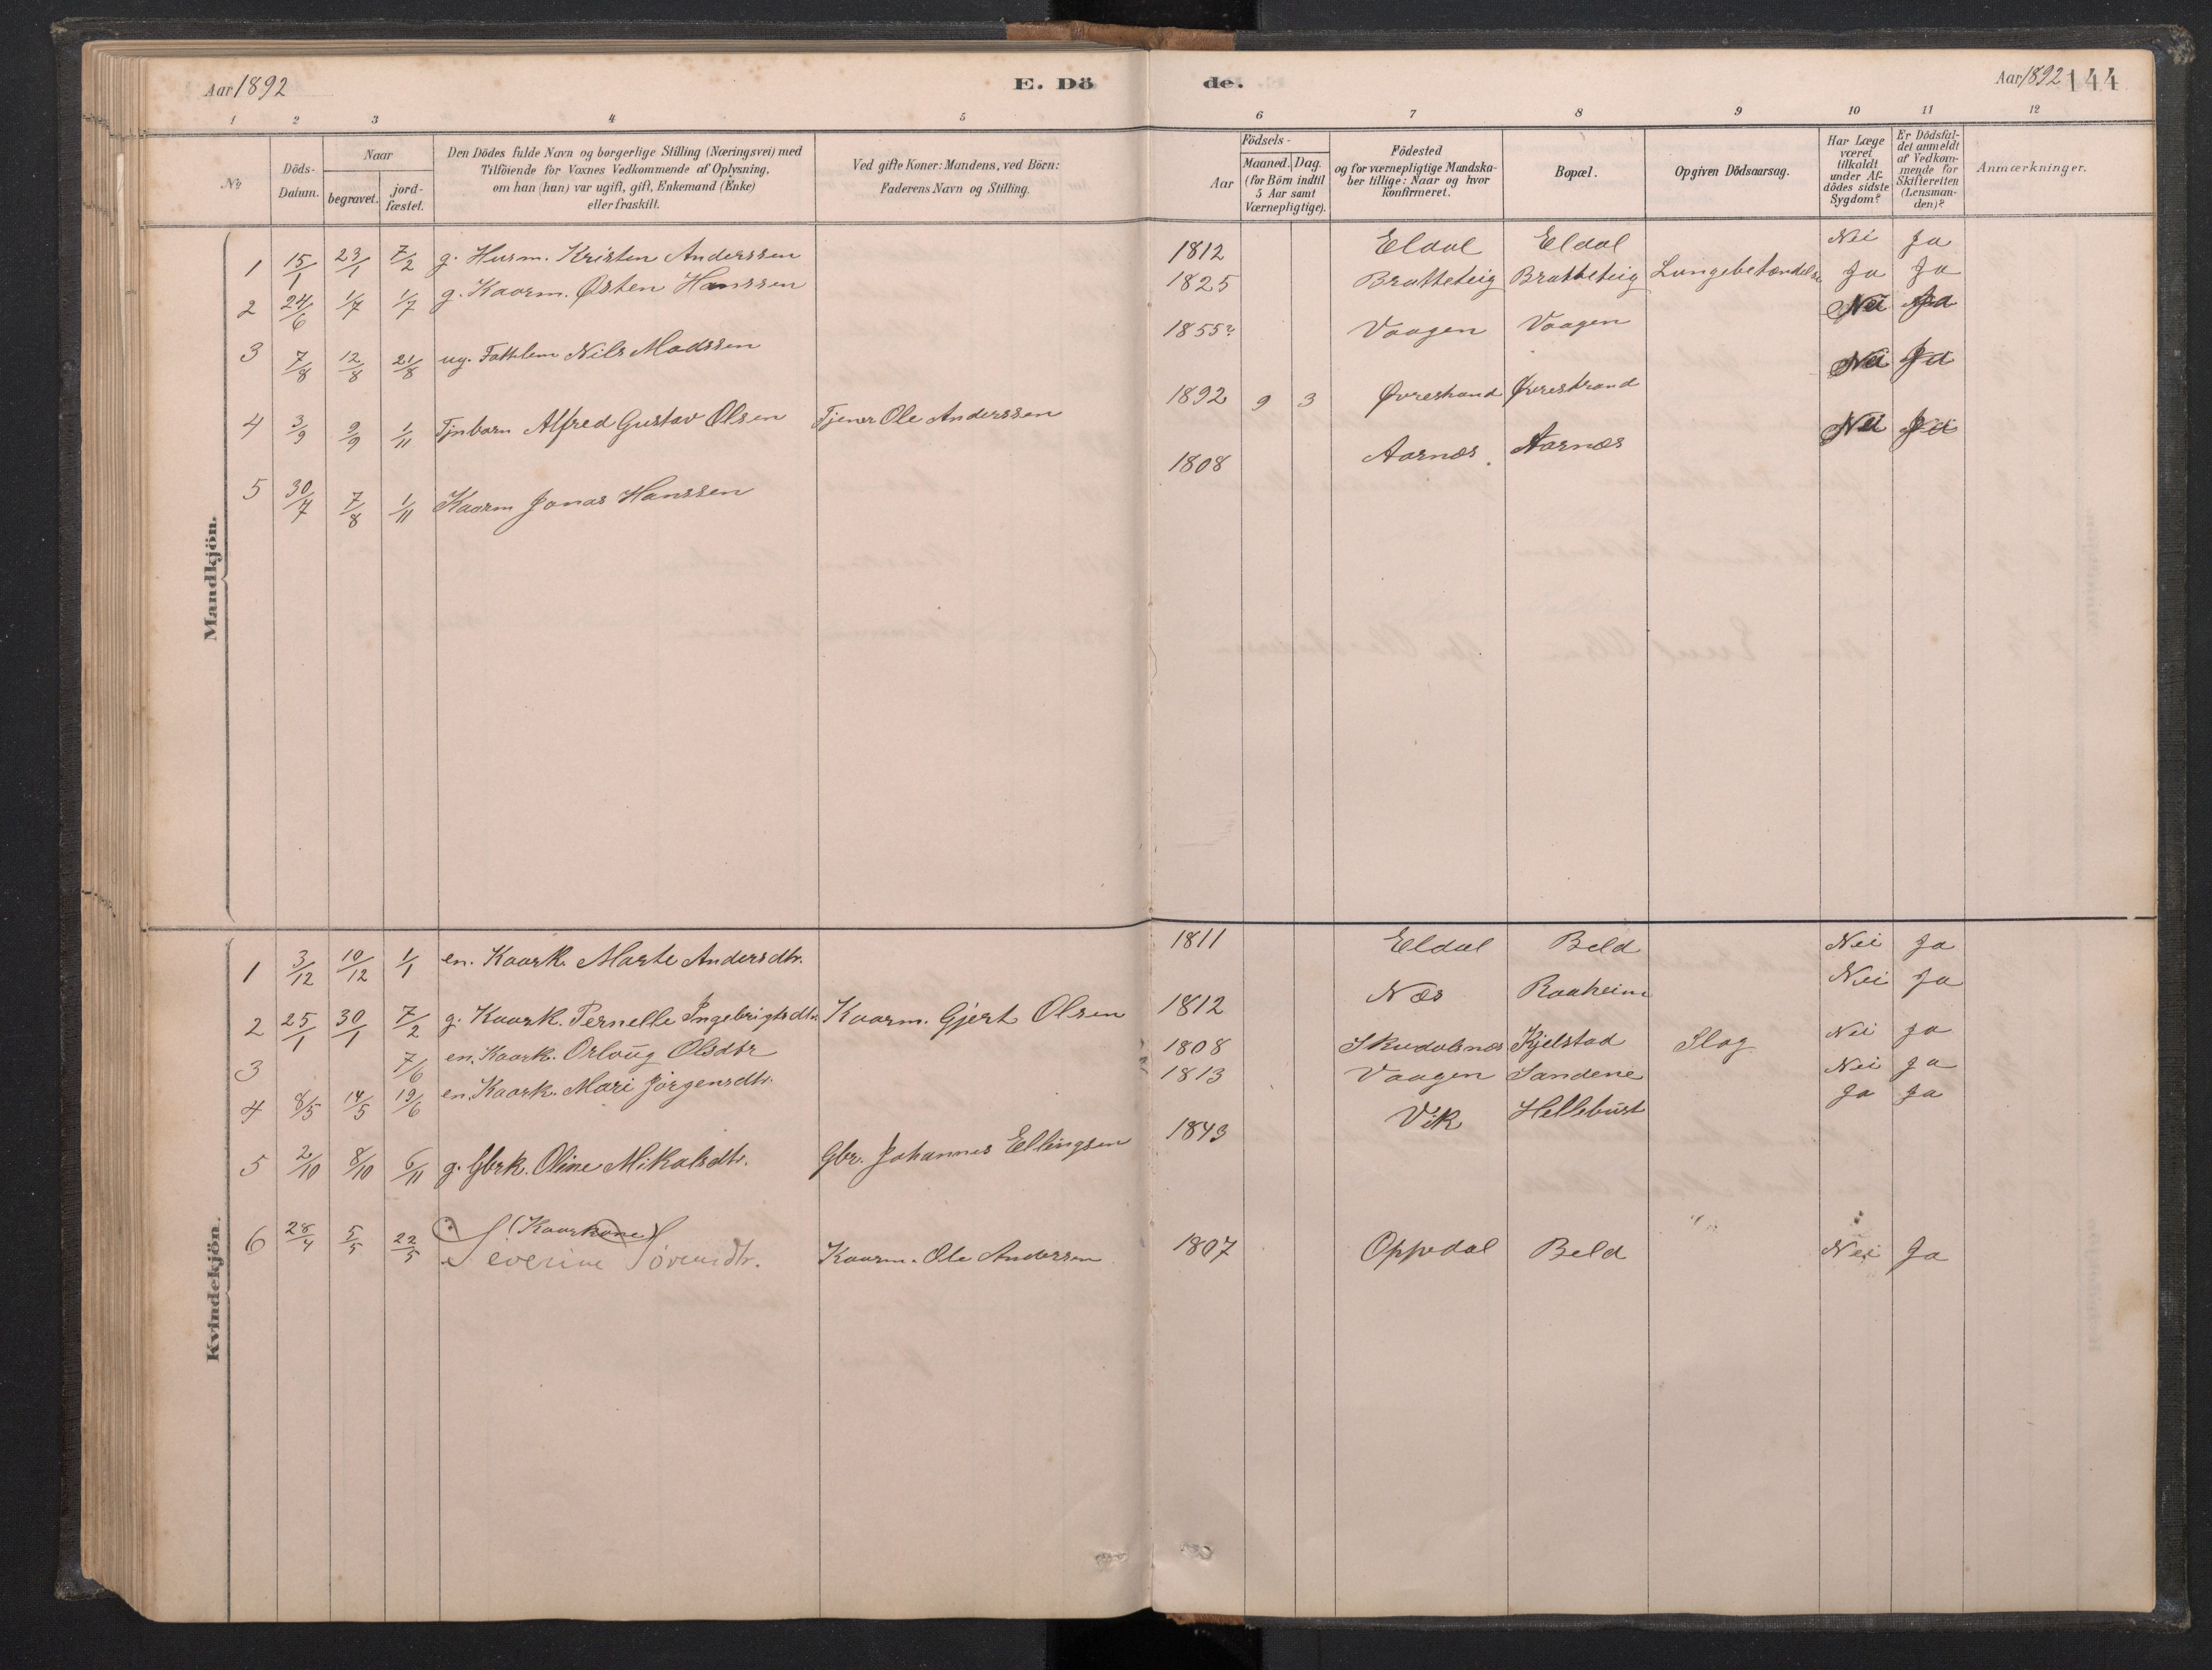 Aar 1892 E. Dö de. Aar 1892 144
1 2 3 4 5 6 7 8 9 10 11 12
No Döds-Datum. Naar begravet. jordfæstet. Den Dödes fulde Navn og borgerlige Stilling (Næringsvei) med Tilföiende for Voxnes Vedkommende af Oplysning, om han (hun) var ugift, gift, Enkemand (Enke) eller fraskilt. Ved gifte Koner: Mandens, ved Börn: Faderens Navn og Stilling. Aar Födsels- Maaned. Dag. (for Börn indtil 5 Aar samt Værnepligtige). Födested og for værnepligtige Mandskaber tillige: Naar og hvor Konfirmeret. Bopæl. Opgiven Dödsaarsag. Har Læge været tilkaldt under Afdödes sidste Sygdom? Er Dödsfaldet anmeldt af Vedkommende for Skifteretten (Lensmanden)? Anmærkninger.
Mandkjön.
1 15/1 23/1 7/2 g. Husm. Kristen Anderssen 1812 Eldal Eldal Nei Ja
2 24/6 1/7 1/7 g. Kaarm. Østen Hanssen 1825 Bratteteig Bratteteig Lungebetændelse Ja Ja
3 7/8 12/8 21/8 ug. Fattlem Nils Madssen 1855? Vaagen Vaagen Nei Ja
4 3/9 9/9 1/11 Tjnbarn Alfred Gustav Olsen Tjener Ole Anderssen 1892 9 3 Øvrestrand Øvrestrand Nei Ja
5 30/7 7/8 1/11 Kaarm Jonas Hanssen 1808 Aarnæs. Aarnæs Nei Ja
Kvindekjön.
1 3/12 10/12 1/1 en. Kaark. Marte Andersdtr. 1811 Eldal Beld Nei Ja
2 25/1 30/1 7/2 g. Kaark. Pernelle Ingebrigtsdtr. Kaarm. Gjert Olsen 1812 Næs Raaheim Nei Ja
3 7/6 en. Kaark. Orloug Olsdtr 1808 Skudalsnæs Kjelstad Slag Nei Ja
4 8/5 14/5 19/6 en. Kaark. Mari Jørgensdtr. 1813 Vaagen Sandene Nei Ja
5 2/10 8/10 6/11 g. Gbrk. Oline Mikalsdtr. Gbr. Johannes Ellingsen 1843 Vik Hellebust Ja Ja
6 28/4 5/5 22/5 (Kaarkone) Severine Sørensdtr. Kaarm. Ole Andersen 1807 Oppedal Beld Nei Ja